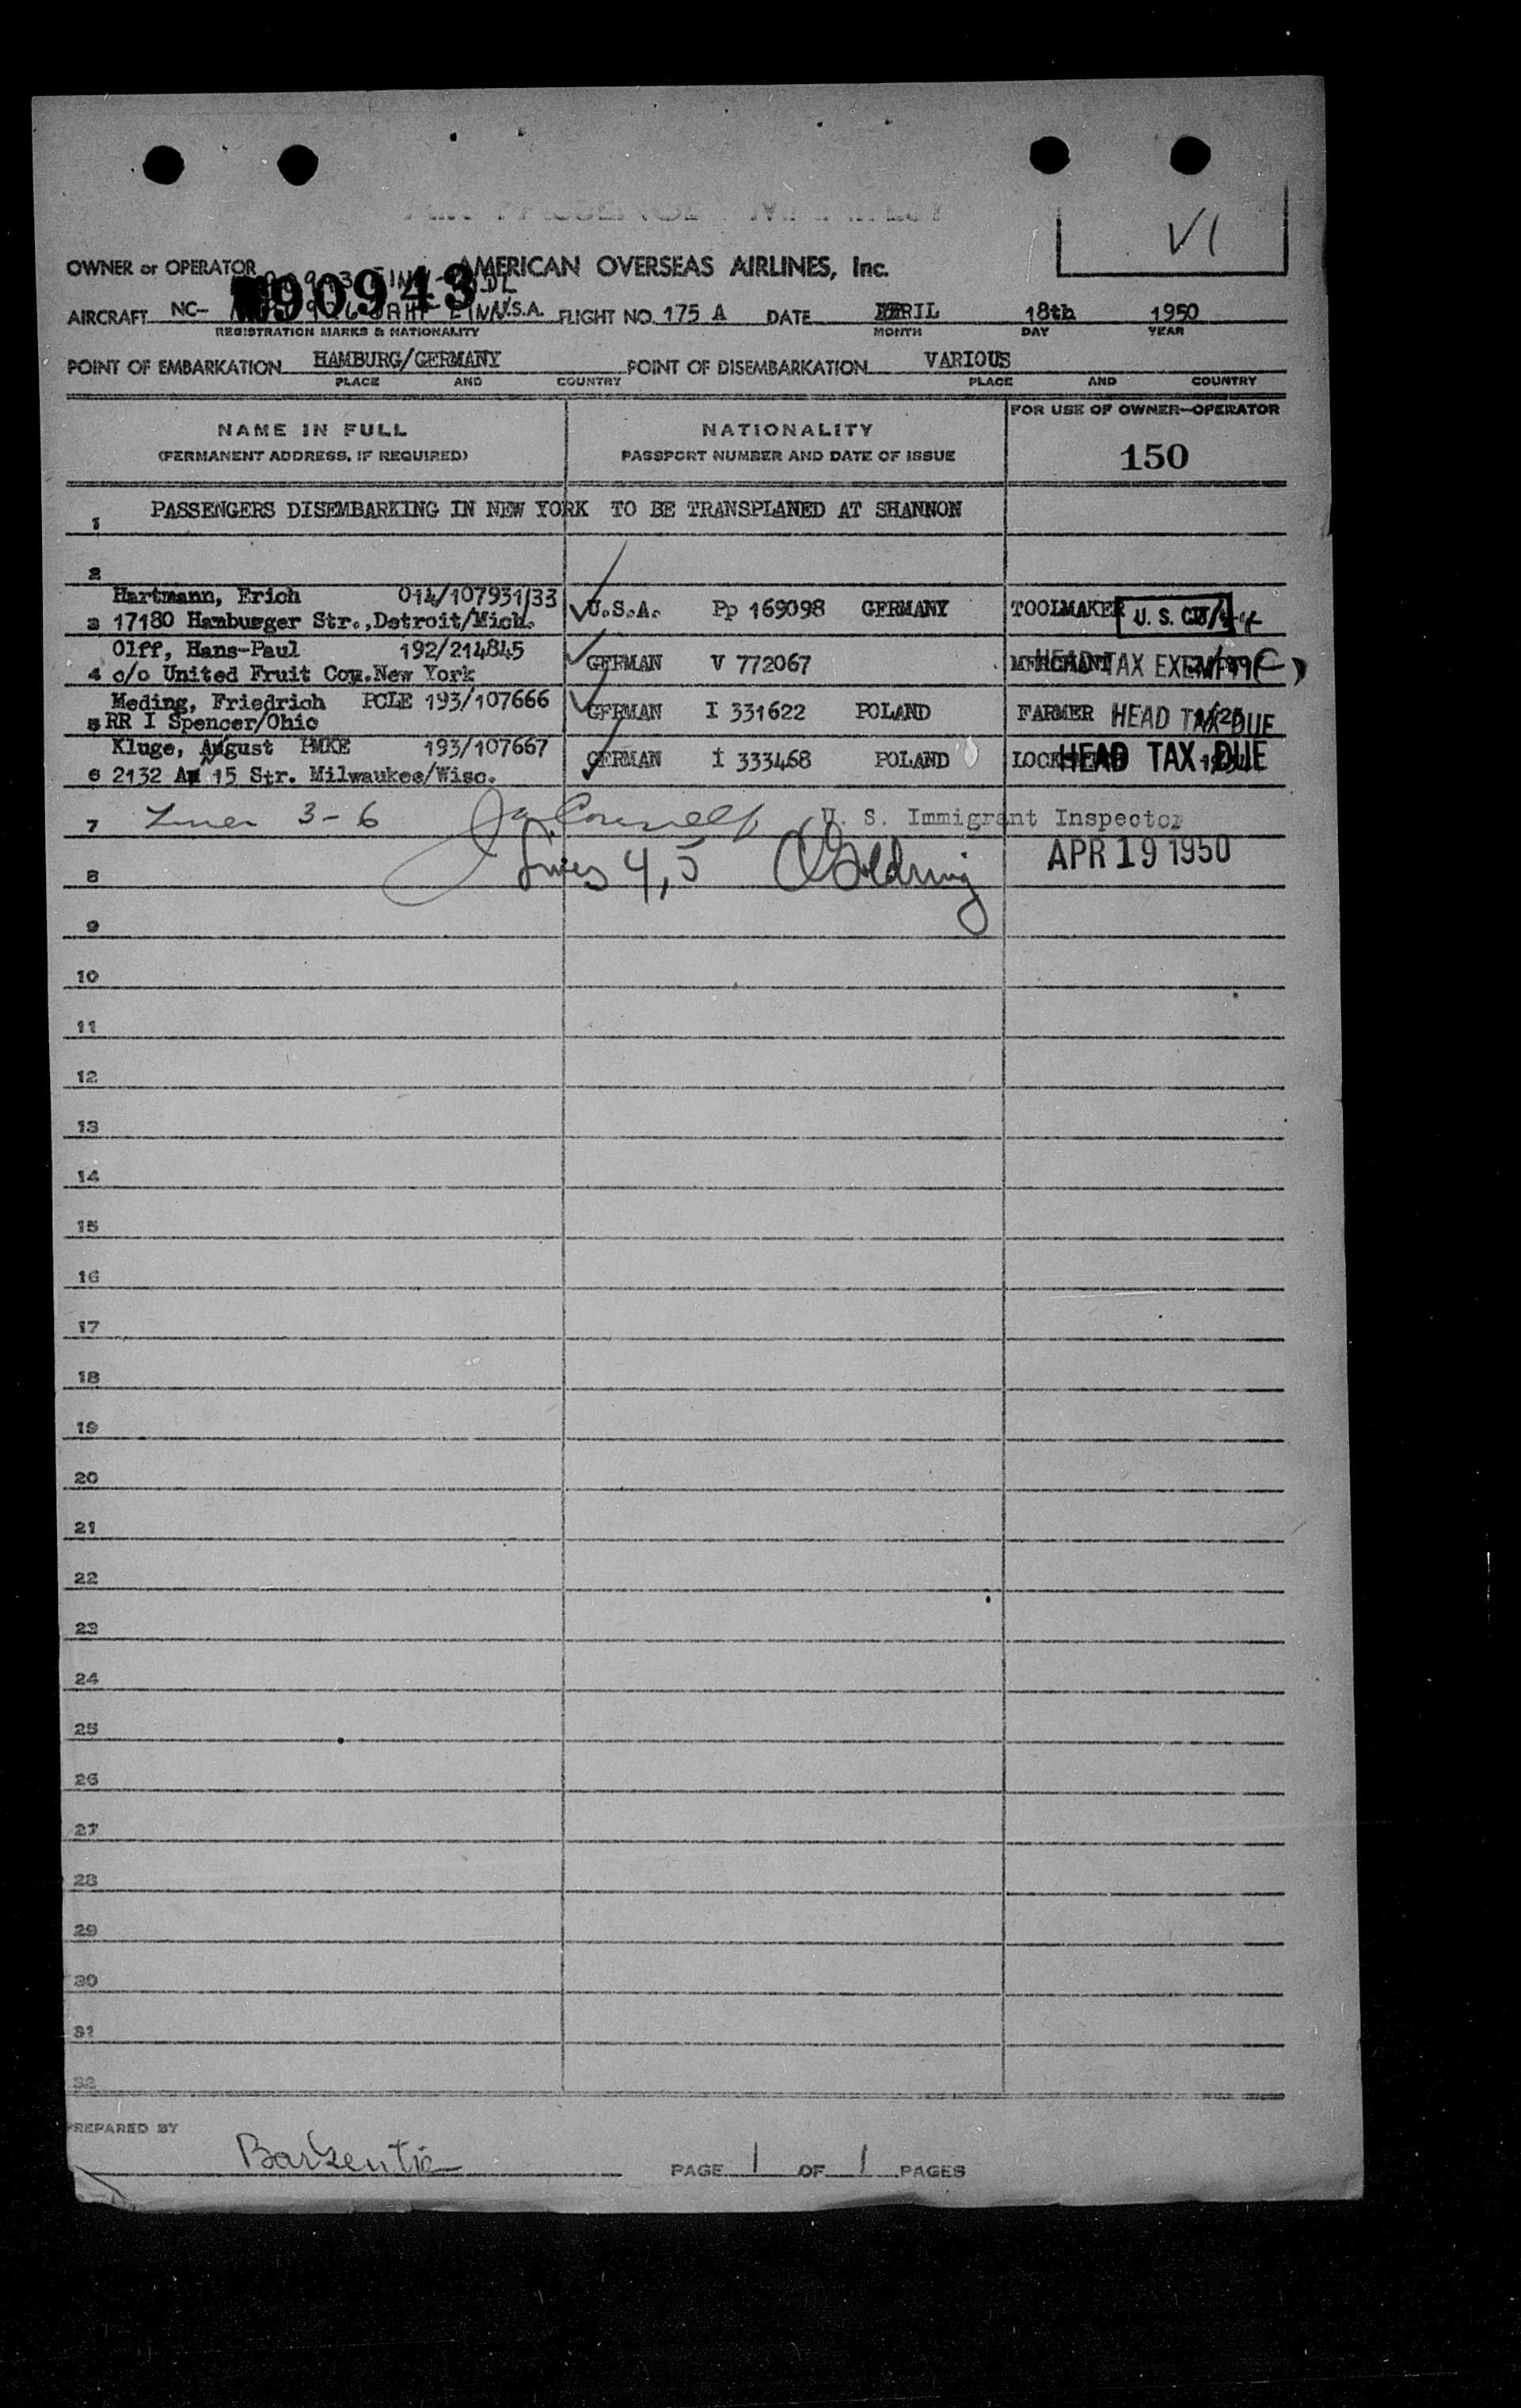 VI
OWNER or OPERATOR AMERICAN OVERSEAS AIRLINES, Inc.
AIRCRAFT NC- 90943 U.S.A. FLIGHT NO. 175 A DATE APRIL 18th 1950
REGISTRATION MARKS & NATIONALITY MONTH DAY YEAR
POINT OF EMBARKATION HAMBURG/GERMANY POINT OF DISEMBARKATION VARIOUS
PLACE AND COUNTRY PLACE AND COUNTRY
NAME IN FULL NATIONALITY FOR USE OF OWNER—OPERATOR
(PERMANENT ADDRESS, IF REQUIRED) PASSPORT NUMBER AND DATE OF ISSUE 150
1 PASSENGERS DISEMBARKING IN NEW YORK TO BE TRANSPLANED AT SHANNON
2
Hartmann, Erich 014/107931/33
3 17180 Hamburger Str.,Detroit/Mich. U.S.A. Pp 169098 GERMANY TOOLMAKER U. S. CIT
Olff, Hans-Paul 192/214845
4 c/o United Fruit Com.New York GERMAN V 772067 MERCHANT HEAD TAX EXEMPT
Meding, Friedrich POLE 193/107666
5 RR I Spencer/Ohio GERMAN I 331622 POLAND FARMER HEAD TAX DUE
Kluge, August 193/107667
6 2132 15 Str. Milwaukee/Wisc. GERMAN I 333468 POLAND HEAD TAX DUE
7 Lines 3-6 U. S. Immigrant Inspector
8 Lines 4,5 Goldring APR 19 1950
9
10
11
12
13
14
15
16
17
18
19
20
21
22
23
24
25
26
27
28
29
30
31
32
PREPARED BY
PAGE 1 OF 1 PAGES